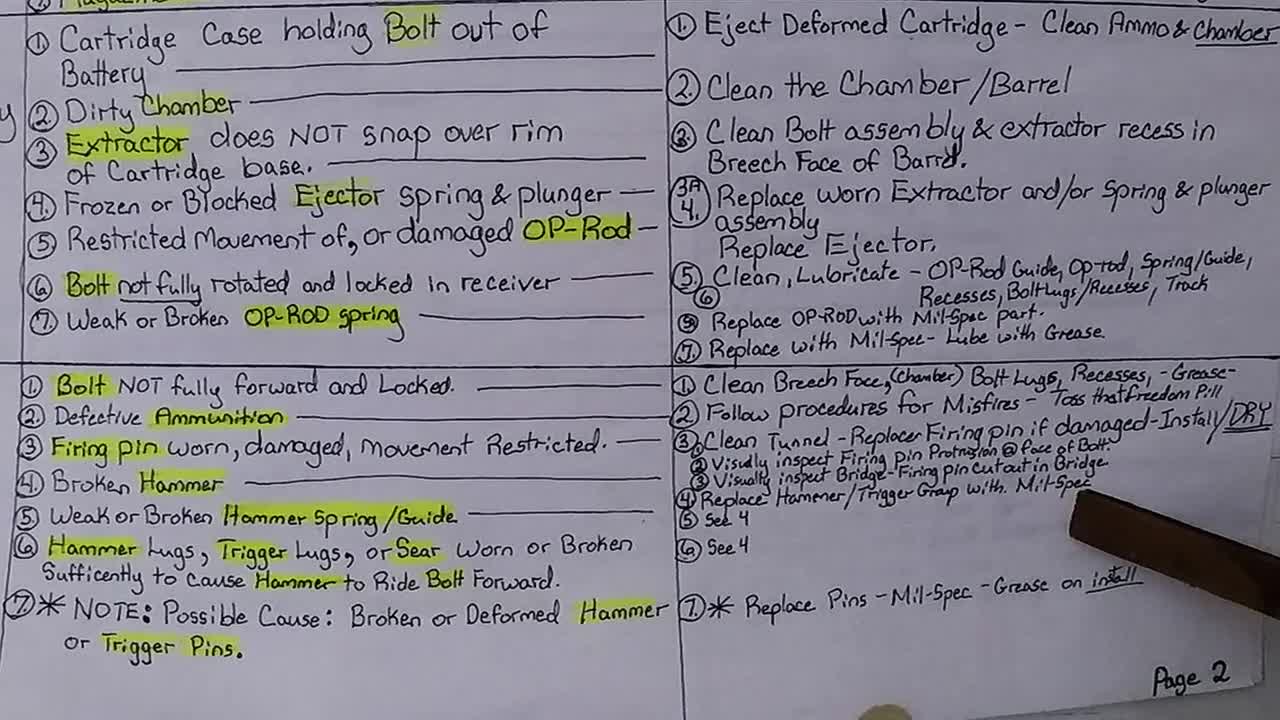 ① Cartridge Case holding Bolt out of
Battery
② Dirty Chamber
③ Extractor does NOT snap over rim
of Cartridge base.
④ Frozen or Blocked Ejector spring & plunger
⑤ Restricted Movement of, or damaged OP-Rod
⑥ Bolt not fully rotated and locked in receiver
⑦ Weak or Broken OP-ROD spring
① Eject Deformed Cartridge - Clean Ammo & Chamber
② Clean the Chamber/Barrel
③ Clean Bolt assembly & extractor recess in
Breech Face of Barrel.
3A Replace worn Extractor and/or Spring & plunger
assembly
4. Replace Ejector.
⑤ Clean, Lubricate - OP-Rod Guide, Op-rod, Spring/Guide,
⑥ Recesses, Bolt Lugs/Recesses, Track
⑤ Replace OP-ROD with Mil-Spec part.
⑦ Replace with Mil-Spec - Lube with Grease.
① Bolt NOT fully forward and Locked.
② Defective Ammunition
③ Firing pin worn, damaged, movement Restricted.
④ Broken Hammer
⑤ Weak or Broken Hammer Spring/Guide
⑥ Hammer Lugs, Trigger Lugs, or Sear worn or Broken
Sufficently to cause Hammer to Ride Bolt Forward.
⑦* NOTE: Possible Cause: Broken or Deformed Hammer
or Trigger Pins.
① Clean Breech Face, (Chamber) Bolt Lugs, Recesses, - Grease-
② Follow procedures for Misfires - Toss that Freedom Pill
③ ① Clean Tunnel - Replace Firing pin if damaged - Install/DRY
② Visually inspect Firing pin Protrusion @ face of Bolt.
③ Visually inspect Bridge - Firing pin cutout in Bridge
④ Replace Hammer/Trigger Group with Mil-Spec
⑤ See 4
⑥ See 4
⑦* Replace Pins - Mil-Spec - Grease on install
Page 2